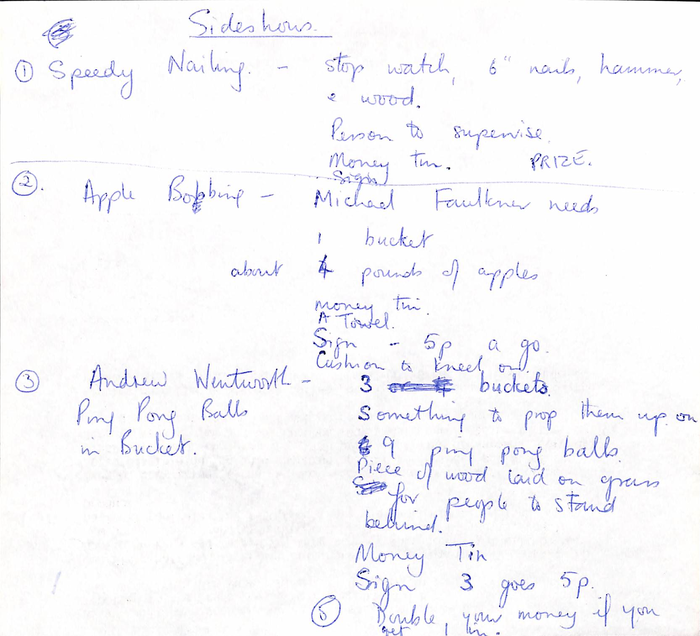 Sideshows.
① Speedy Nailing. - stop watch, 6" nails, hammer,
& wood.
Person to supervise.
Money tin. PRIZE.
Sign
②. Apple Bobbing - Michael Faulkner needs
1 bucket
about 4 pounds of apples
money tin.
A Towel.
Sign - 5p a go.
Cushion to kneel on.
③ Andrew Wentworth - 3 buckets.
Ping Pong Balls Something to prop them up on
in Bucket. 9 ping pong balls.
Piece of wood laid on grass
for people to stand
behind.
Money Tin
Sign 3 goes 5p.
⑤ Double your money if you
get 1 in.